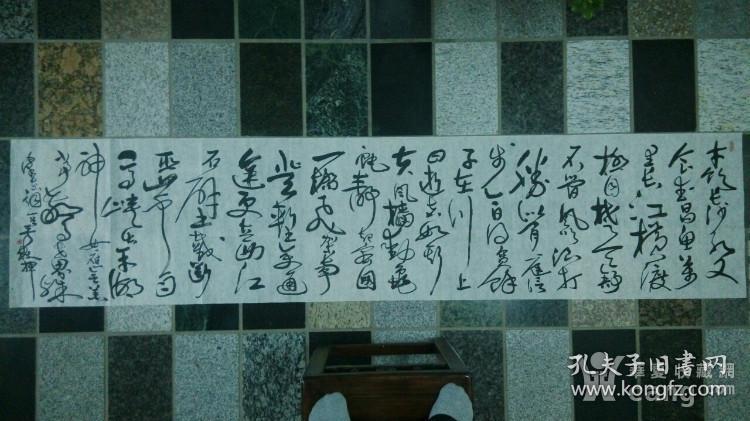 才饮長沙水又
食武昌魚萬
里长江横渡
极目楚天舒
不管風吹浪打
勝似閑庭信
步今日得宽馀
子在川上
曰逝者如斯
夫風檣動龜
蛇静起宏图
一橋飞架南
北天堑变通
途更立西江
石壁截断
巫山云雨
高峡出平湖
神女应无恙
当惊世界殊
孔夫子旧书网
www.kongfz.com
華夏收藏網